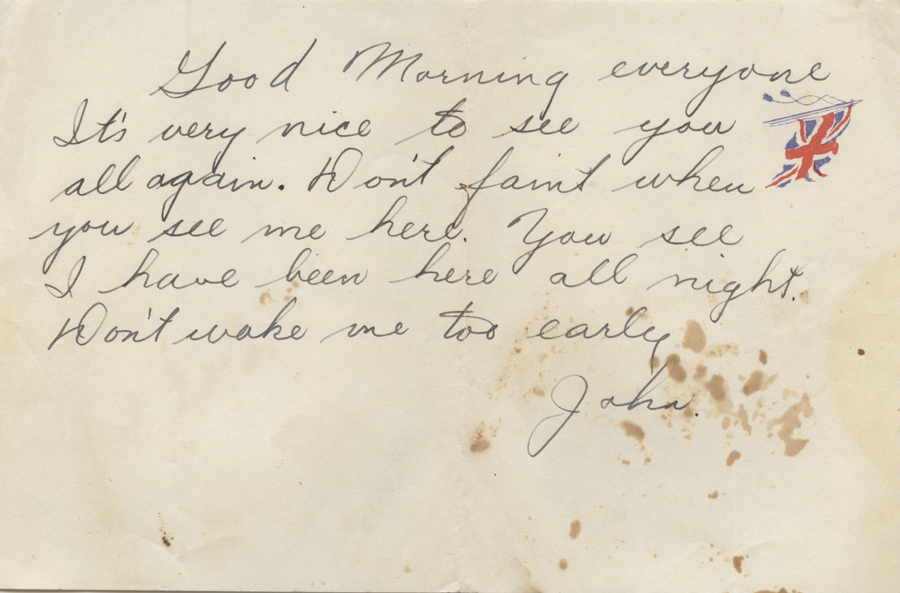 Good Morning everyone
It's very nice to see you
all again. Don't faint when
you see me here. You see
I have been here all night.
Don't wake me too early
John.